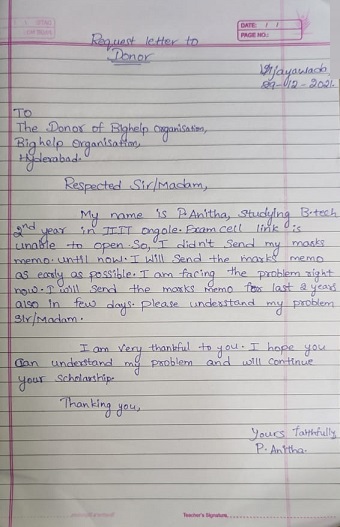 DATE: / /
PAGE NO.:
Request letter to
Donor
Vijayawada
29-12-2021
To
The Donor of Bighelp Organisation,
Bighelp Organisation,
Hyderabad.
Respected Sir/Madam,
My name is P.Anitha, studying B.tech
2nd year in IIIT ongole. Exam cell link is
unable to open. So, I didn't send my marks
memo. until now. I will send the marks memo
as early as possible. I am facing the problem right
now. I will send the marks memo for last 2 years
also in few days. please understand my problem
Sir/Madam.
I am very thankful to you. I hope you
can understand my problem and will continue
your scholarship.
Thanking you,
Yours faithfully
P. Anitha.
Teacher's Signature